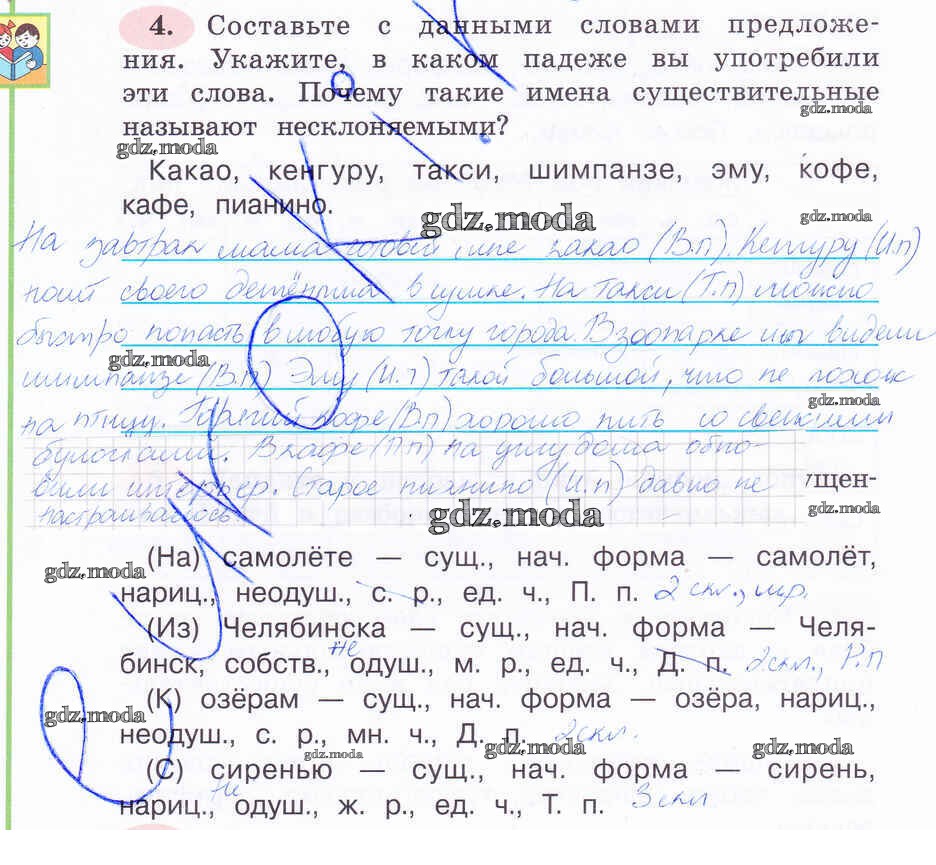 4. Составьте с данными словами предложе-
ния. Укажите, в каком падеже вы употребили
эти слова. Почему такие имена существительные
называют несклоняемыми?
Какао, кенгуру, такси, шимпанзе, эму, кофе,
кафе, пианино.
На завтрак мама готовит мне какао (В.п). Кенгуру (И.п)
носит своего детёныша в сумке. На такси (Т.п) можно
быстро попасть в любую точку города. В зоопарке мы видели
шимпанзе (В.п) Эму (И.п) такой большой, что не похож
на птицу. Горячий кофе (В.п) хорошо пить со свежими
булочками. В кафе (П.п) на углу дома обно-
вили интерьер. Старое пианино (И.п) давно не
ущен-
настраивалось.
(На) самолёте — сущ., нач. форма — самолёт,
нариц., неодуш., с. р., ед. ч., П. п. 2 скл., м.р.
(Из) Челябинска — сущ., нач. форма — Челя-
не
бинск, собств., одуш., м. р., ед. ч., Д. п. 2 скл., Р.п
(К) озёрам — сущ., нач. форма — озёра, нариц.,
неодуш., с. р., мн. ч., Д. п. 2 скл.
(С) сиренью — сущ., нач. форма — сирень,
не
нариц., одуш., ж. р., ед. ч., Т. п. 3 скл
gdz.moda
gdz.moda
gdz.moda
gdz.moda
gdz.moda
gdz.moda
gdz.moda
gdz.moda
gdz.moda
gdz.moda
gdz.moda
gdz.moda
gdz.moda